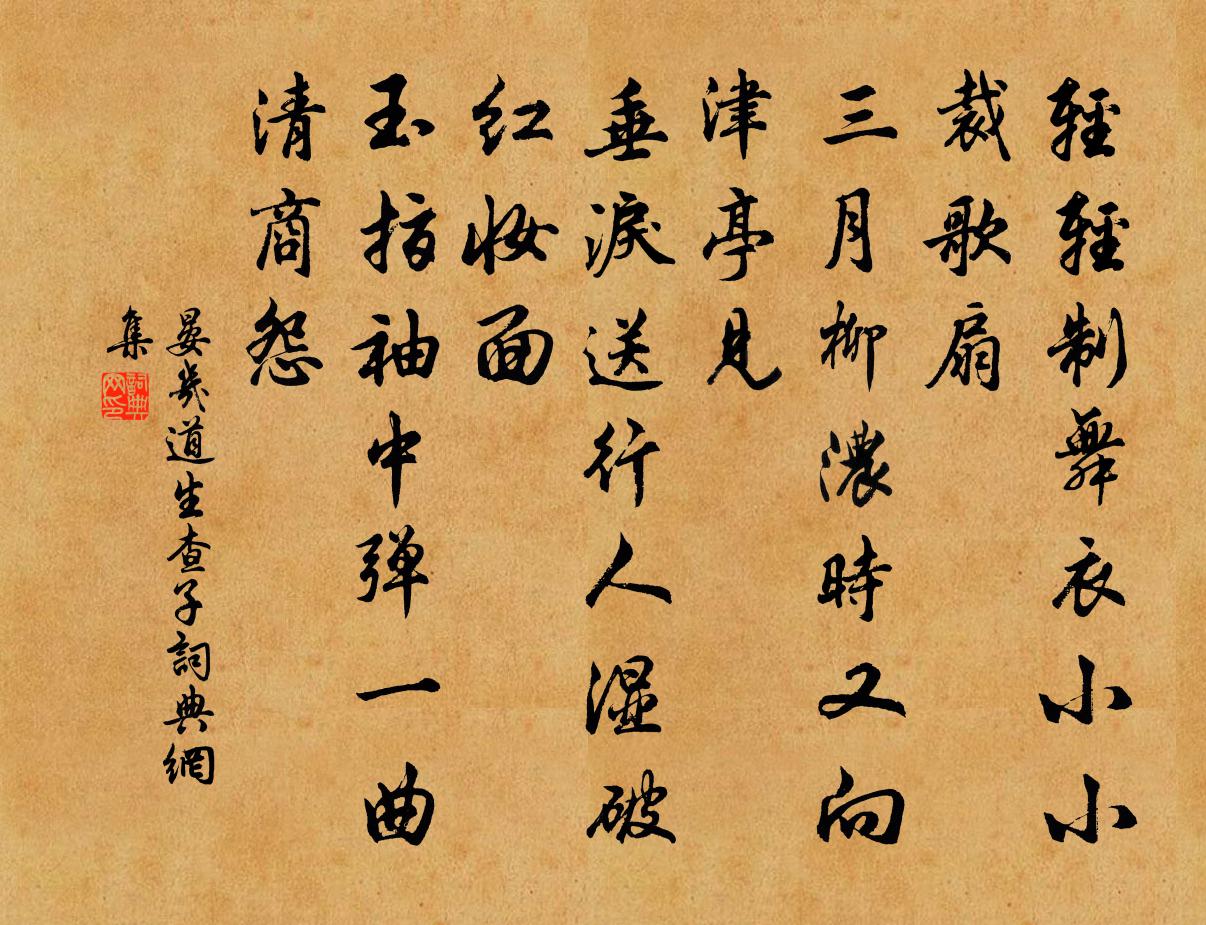 輕輕制舞衣小小
裁歌扇
三月柳濃時又向
津亭見
垂淚送行人湿破
红妆面
玉指袖中弹一曲
清商怨
晏幾道生查子詞典網
集
詞典
网印